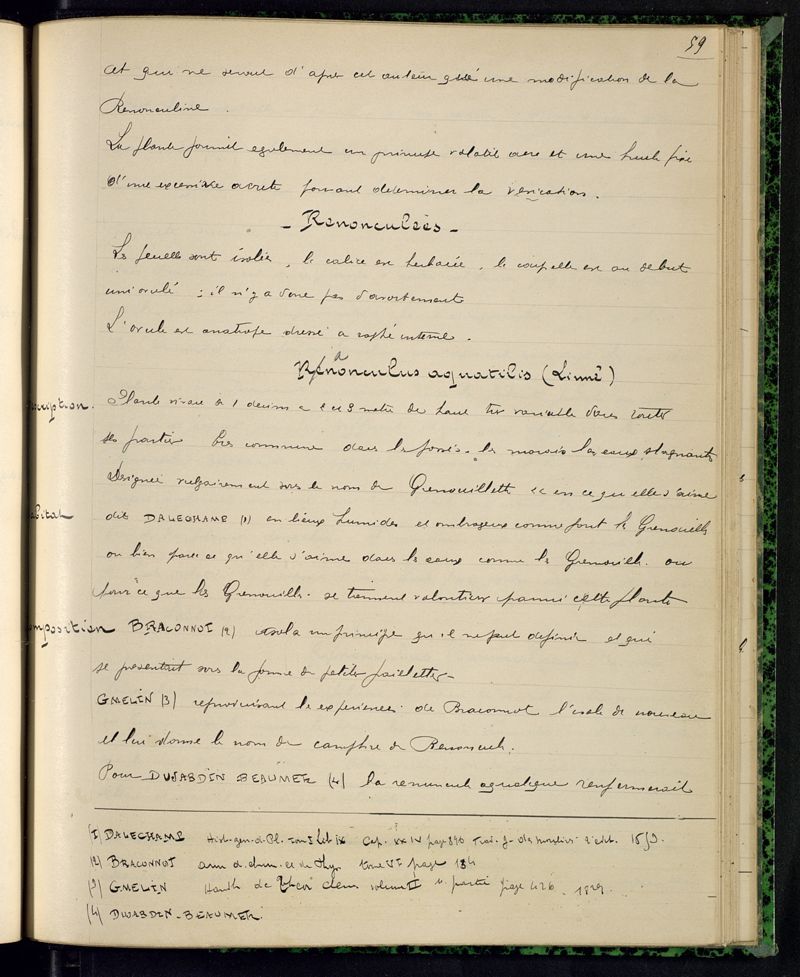 59
et qui ne serait d'après cet auteur que une modification de la
Renonculine.
La plante fournit egalement un principe volatil acre et une huile fixe
d'une excessive acreté pouvant determiner la vesication.
- Renonculées -
Les feuilles sont isolées, le calice est herbacée, la est au debut
uniovulé ; il n'y a donc pas d'avortement
L'ovule est anatrope dressé a raphé interne.
Renonculus aquatilis (Linné)
Plante vivace de 1 decim a 2 et 3 metre de haut tres variable dans toutes
ses parties tres commune dans les fossés, les marais les eaux stagnantes
Designée vulgairement sous le nom de Grenouillette et en ce qu'elle s'aime
dit DALECHAMP (1) en lieux humides et ombrageux comme font les Grenouilles
ou bien parce qu'elle s'aime dans les eaux comme les Grenouilles. ou
pour ce que les Grenouilles se tiennent volontiers parmi cette plante
omposition BRACONNOT (2) isola un principe qu'il ne peut definir et qui
se presentait sous la forme de petites paillettes -
GMELIN (3) reproduisant les experiences de Braconnot l'isole de nouveau
et lui donne le nom de camphre de Renoncule.
Pour DUJARDIN BEAUMETZ (4) la renoncule aquatique renfermerait
(1) DALECHAMP Hist. gen. d. Pl. Cap. XXIV page 890 Trad. 2e edit. 1653.
(2) BRACONNOT ann d. chim. et de Phys. tome VI page 134
(3) GMELIN Handb de chem volume II partie page 426. 1829.
(4) DUJARDIN-BEAUMETZ.